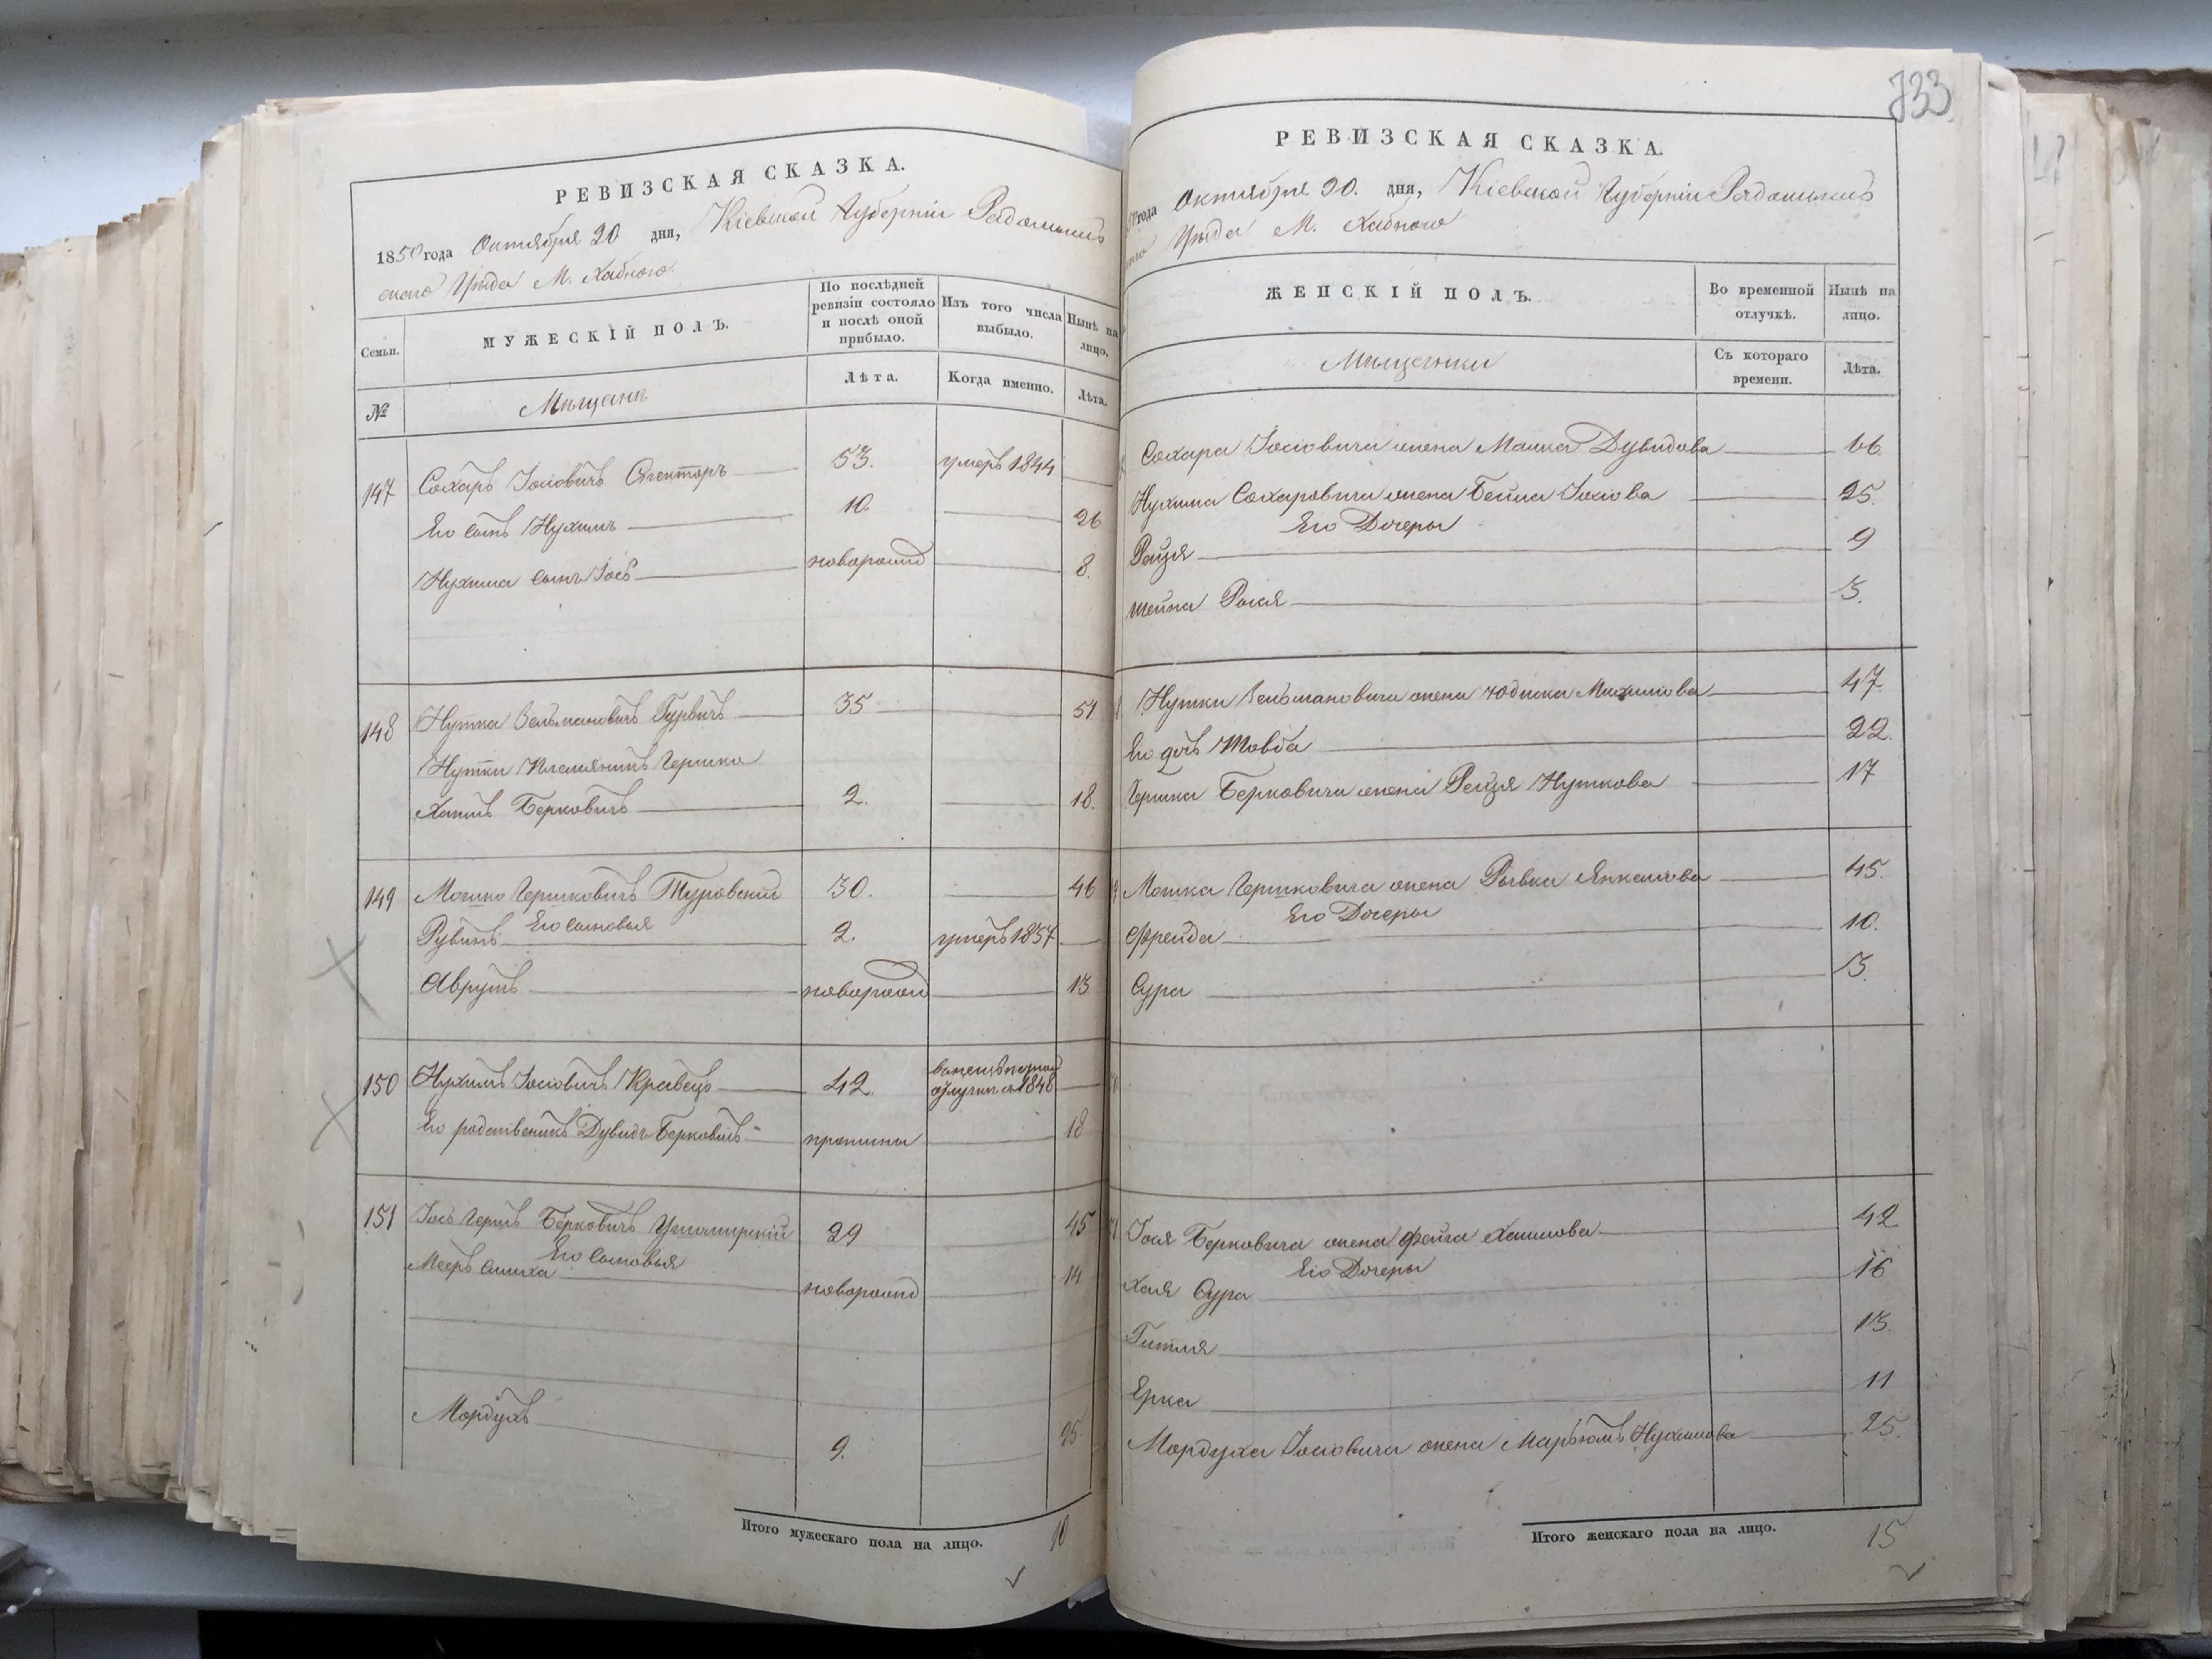 РЕВИЗСКАЯ СКАЗКА.
1850 года Октября 20 дня, Кіевской Губерніи Радомысль
скаго Уѣзда М. Хабного
Семьи.
МУЖЕСКІЙ ПОЛЪ.
По послѣдней ревизіи состояло и послѣ оной прибыло.
Изъ того числа выбыло.
Нынѣ на лицо.
№
Мѣщане
Лѣта.
Когда именно.
Лѣта.
147 Сохаръ Іосіовичъ Спекторъ 53. умеръ 1844
Его сынъ Нухимъ 10. 26
Нухима сынъ Іось новорожд 8.
148 Нутка Зельмановичъ Гурвичъ 35 51
Нутки племянникъ Гершко
Хаимъ Берковичъ 2. 18.
149 Мошко Гершковичъ Туровскій 30. 46
Его сыновья
Рувинъ 2. умеръ 1837
Аврумъ новорожд 13
150 Нухимъ Іосіовичъ Кравецъ 42. 1848
Его родственикъ Дувидъ Берковичъ 18
151 Іось Гершъ Берковичъ Ушомирскій 29 45
Его сыновья
Мееръ Симха новорожд 14
Мордухъ 9. 25.
Итого мужескаго пола на лицо. 10
733
РЕВИЗСКАЯ СКАЗКА.
года Октября 20. дня, Кіевской Губерніи Радомысль
Уѣзда М. Хабного
ЖЕНСКІЙ ПОЛЪ.
Во временной отлучкѣ.
Нынѣ на лицо.
Мѣщанки
Съ котораго времени.
Лѣта.
Сохара Іосіовича жена Малка Дувидова 66
Нухима Сохаровича жена Бейла Іосіова 25.
Его Дочеры
Рейзя 9
Шейна Рося 3.
Нутки Зельмановича жена Юдиска 47
Его дочь Товба 22.
Гершка Берковича жена Рейзя Нуткова 17
Мошка Гершковича жена Рывка Янкелева 45.
Его Дочеры
Фрейда 10.
Сура 3.
Іося Берковича жена Фейга Хаимова 42
Его Дочеры
Хая Сура 16
Гитля 13
Ерка 11
Мордуха Іосіовича жена Марьямъ Нухимова 25.
Итого женскаго пола на лицо. 15